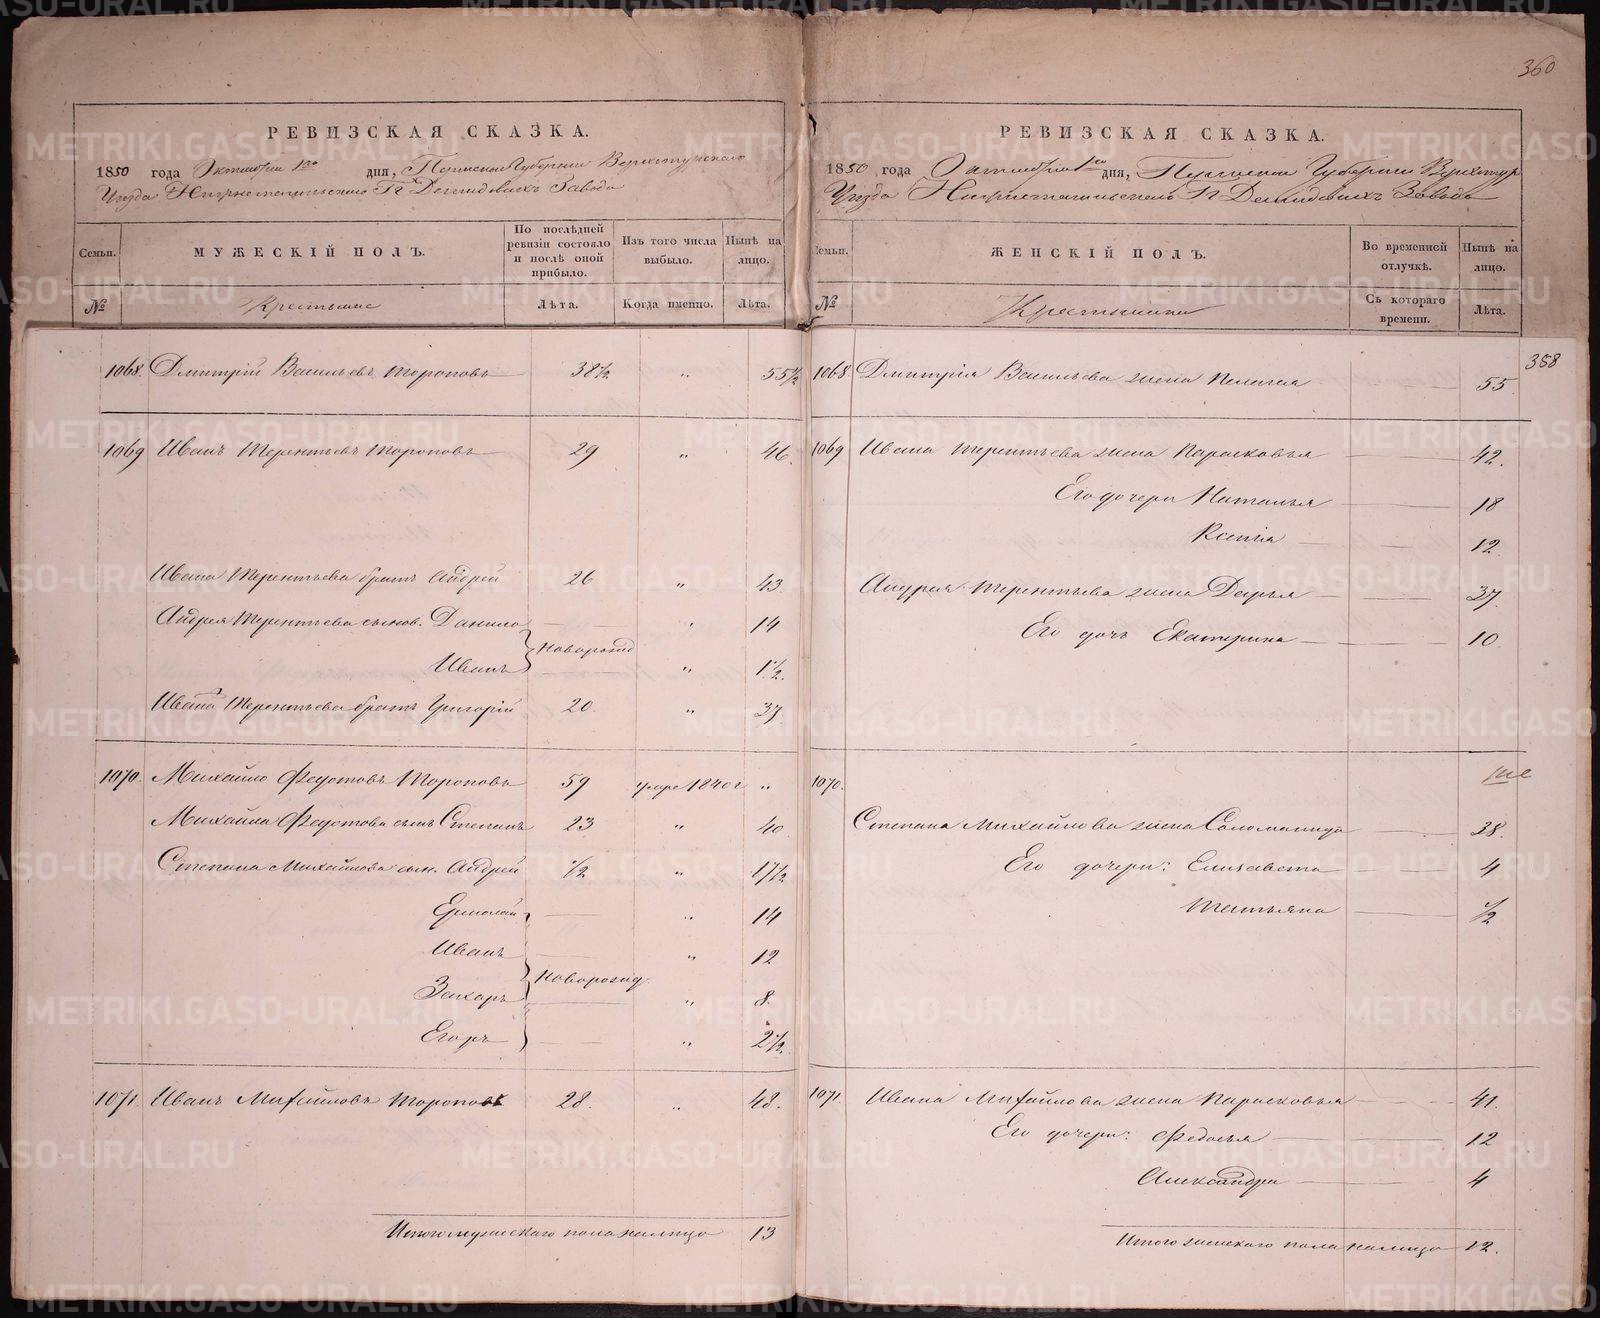 360
РЕВИЗСКАЯ СКАЗКА.
1850 года Октября 1го дня, Пермской Губернии Верхотурскаго
Уезда Нижнетагильскаго Гг Демидовыхъ Завода
Семьи.
МУЖЕСКІЙ ПОЛЪ.
По послѣдней ревизіи состояло и послѣ оной прибыло.
Изъ того числа выбыло.
Нынѣ на лицо.
№
Крестьяне
Лѣта.
Когда именно.
Лѣта.
1068. Дмитрій Васильевъ Тороповъ 38½ " 55½
1069 Иванъ Терентьевъ Тороповъ 29 " 46.
Ивана Терентьева братъ Андрей 26 " 43.
Андрея Терентьева сынов. Данило " 14
новорожд
Иванъ " 1½.
Ивана Терентьева братъ Григорій 20. " 37.
1070. Михайло Федотовъ Тороповъ 59 умре 1840 г "
Михайла Федотова сынъ Степанъ 23 " 40.
Степана Михайлова сын. Андрей ½ " 17½
Ермолай " 14
Иванъ " 12
новорожд.
Захаръ " 8.
Егоръ " 2½.
1071. Иванъ Михайловъ Тороповъ 28. " 48.
Итого мужескаго пола налицо 13
РЕВИЗСКАЯ СКАЗКА.
1850 года Октября 1го дня, Пермской Губернии Верхотур
Уезда Нижнетагильскаго Гг Демидовыхъ Завода
Семьи.
ЖЕНСКІЙ ПОЛЪ.
Во временной отлучкѣ.
Нынѣ на лицо.
№
Крестьянки
Съ котораго времени.
Лѣта.
358
1068 Дмитрія Васильева жена Пелагея 55.
1069 Ивана Терентьева жена Парасковья 42.
Его дочери Наталья 18
Ксенія 12.
Андрея Терентьева жена Дарья 37.
Его дочь Екатерина 10.
1070.
Степана Михайлова жена Соломанида 38.
Его дочери: Елизавета 4
Татьяна ½
1071 Ивана Михайлова жена Парасковья 41.
Его дочери: Федосья 12
Александра 4
Итого женскаго пола налицо 12.
METRIKI.GASO-URAL.RU